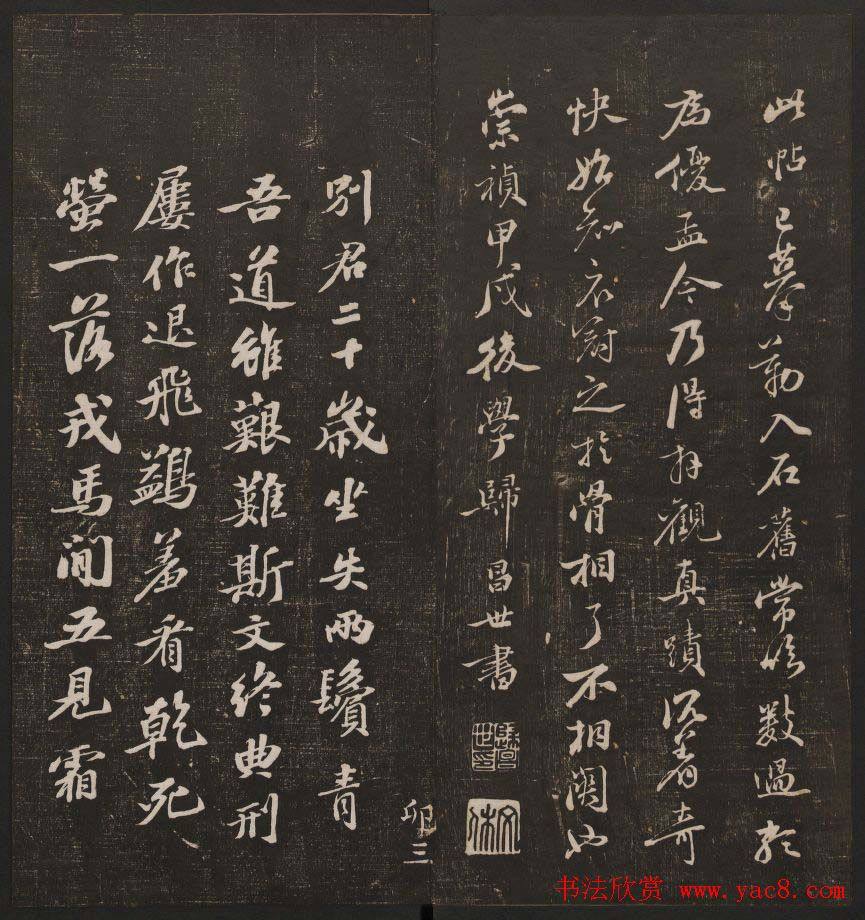 此帖已摹勒入石舊常臨數過於
為優孟今乃得拜觀真蹟沉着奇
快始知衣冠之於骨相了不相關也
崇禎甲戌後學歸昌世書
歸昌世印
文休
卯三
別君二十歲坐失兩鬢青
吾道雖艱難斯文終典刑
屢作退飛鷁羞看乾死
螢一落戎馬間五見霜
书法欣赏 www.yac8.com